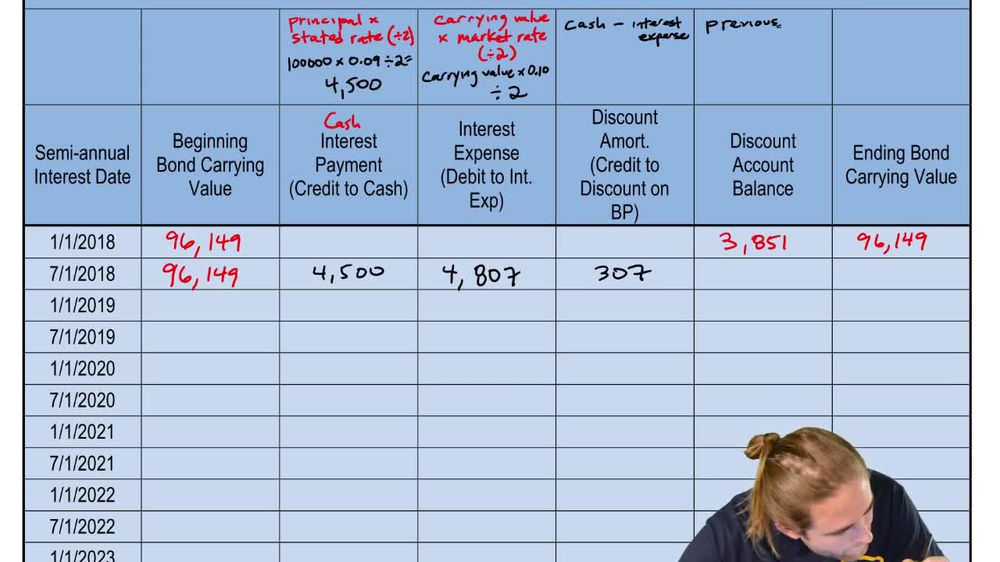 principal x
stated rate (÷2)
100000 x 0.09 ÷ 2 =
4,500
carrying value
x market rate
(÷2)
carrying value x 0.10
÷ 2
cash - interest
expense
previous
Semi-annual
Interest Date
Beginning
Bond Carrying
Value
Cash
Interest
Payment
(Credit to Cash)
Interest
Expense
(Debit to Int.
Exp)
Discount
Amort.
(Credit to
Discount on
BP)
Discount
Account
Balance
Ending Bond
Carrying Value
1/1/2018 96,149 3,851 96,149
7/1/2018 96,149 4,500 4,807 307
1/1/2019
7/1/2019
1/1/2020
7/1/2020
1/1/2021
7/1/2021
1/1/2022
7/1/2022
1/1/2023